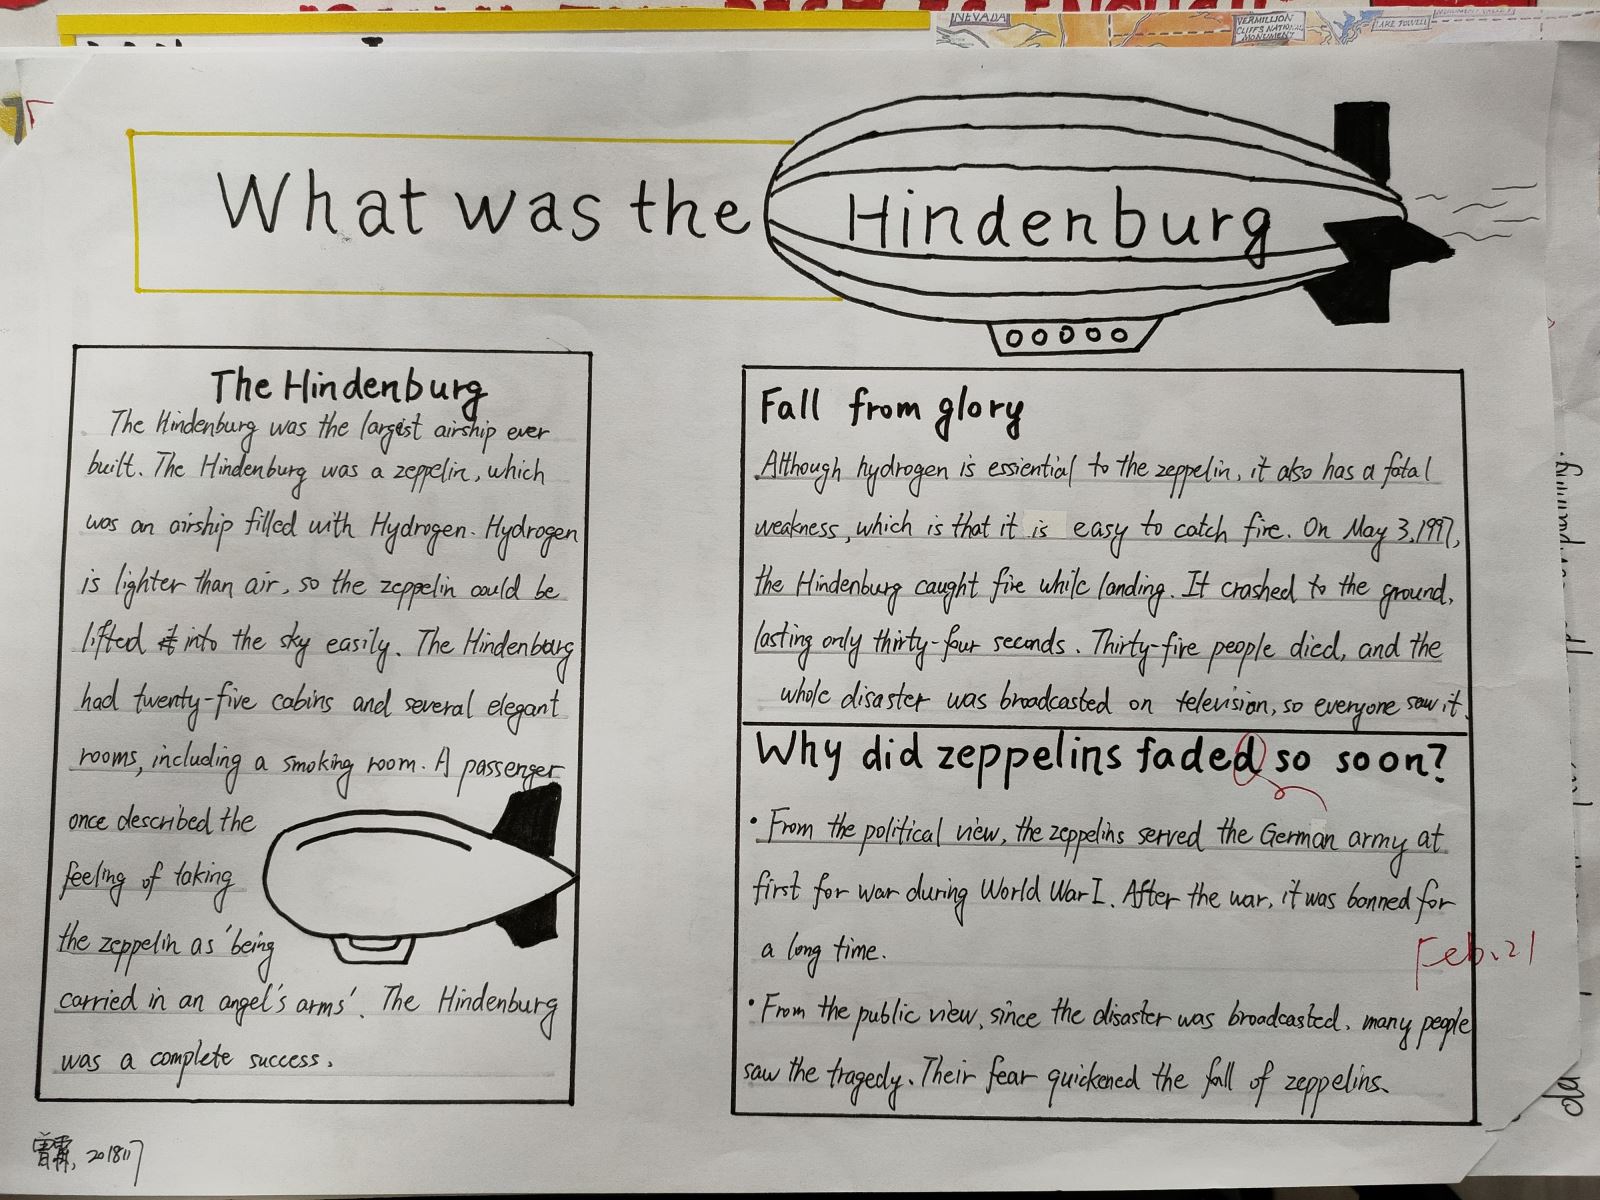 NEVADA
VERMILLION
CLIFFS NATIONAL
MONUMENT
LAKE POWELL
What was the Hindenburg
The Hindenburg
The Hindenburg was the largest airship ever
built. The Hindenburg was a zeppelin, which
was an airship filled with Hydrogen. Hydrogen
is lighter than air, so the zeppelin could be
lifted into the sky easily. The Hindenburg
had twenty-five cabins and several elegant
rooms, including a smoking room. A passenger
once described the
feeling of taking
the zeppelin as 'being
carried in an angel's arms'. The Hindenburg
was a complete success.
Fall from glory
Although hydrogen is essiential to the zeppelin, it also has a fatal
weakness, which is that it is easy to catch fire. On May 3, 1997,
the Hindenburg caught fire while landing. It crashed to the ground,
lasting only thirty-four seconds. Thirty-five people died, and the
whole disaster was broadcasted on television, so everyone saw it.
Why did zeppelins faded so soon?
• From the political view, the zeppelins served the German army at
first for war during World War I. After the war, it was banned for
a long time.
Feb. 21
• From the public view, since the disaster was broadcasted, many people
saw the tragedy. Their fear quickened the fall of zeppelins.
2018117